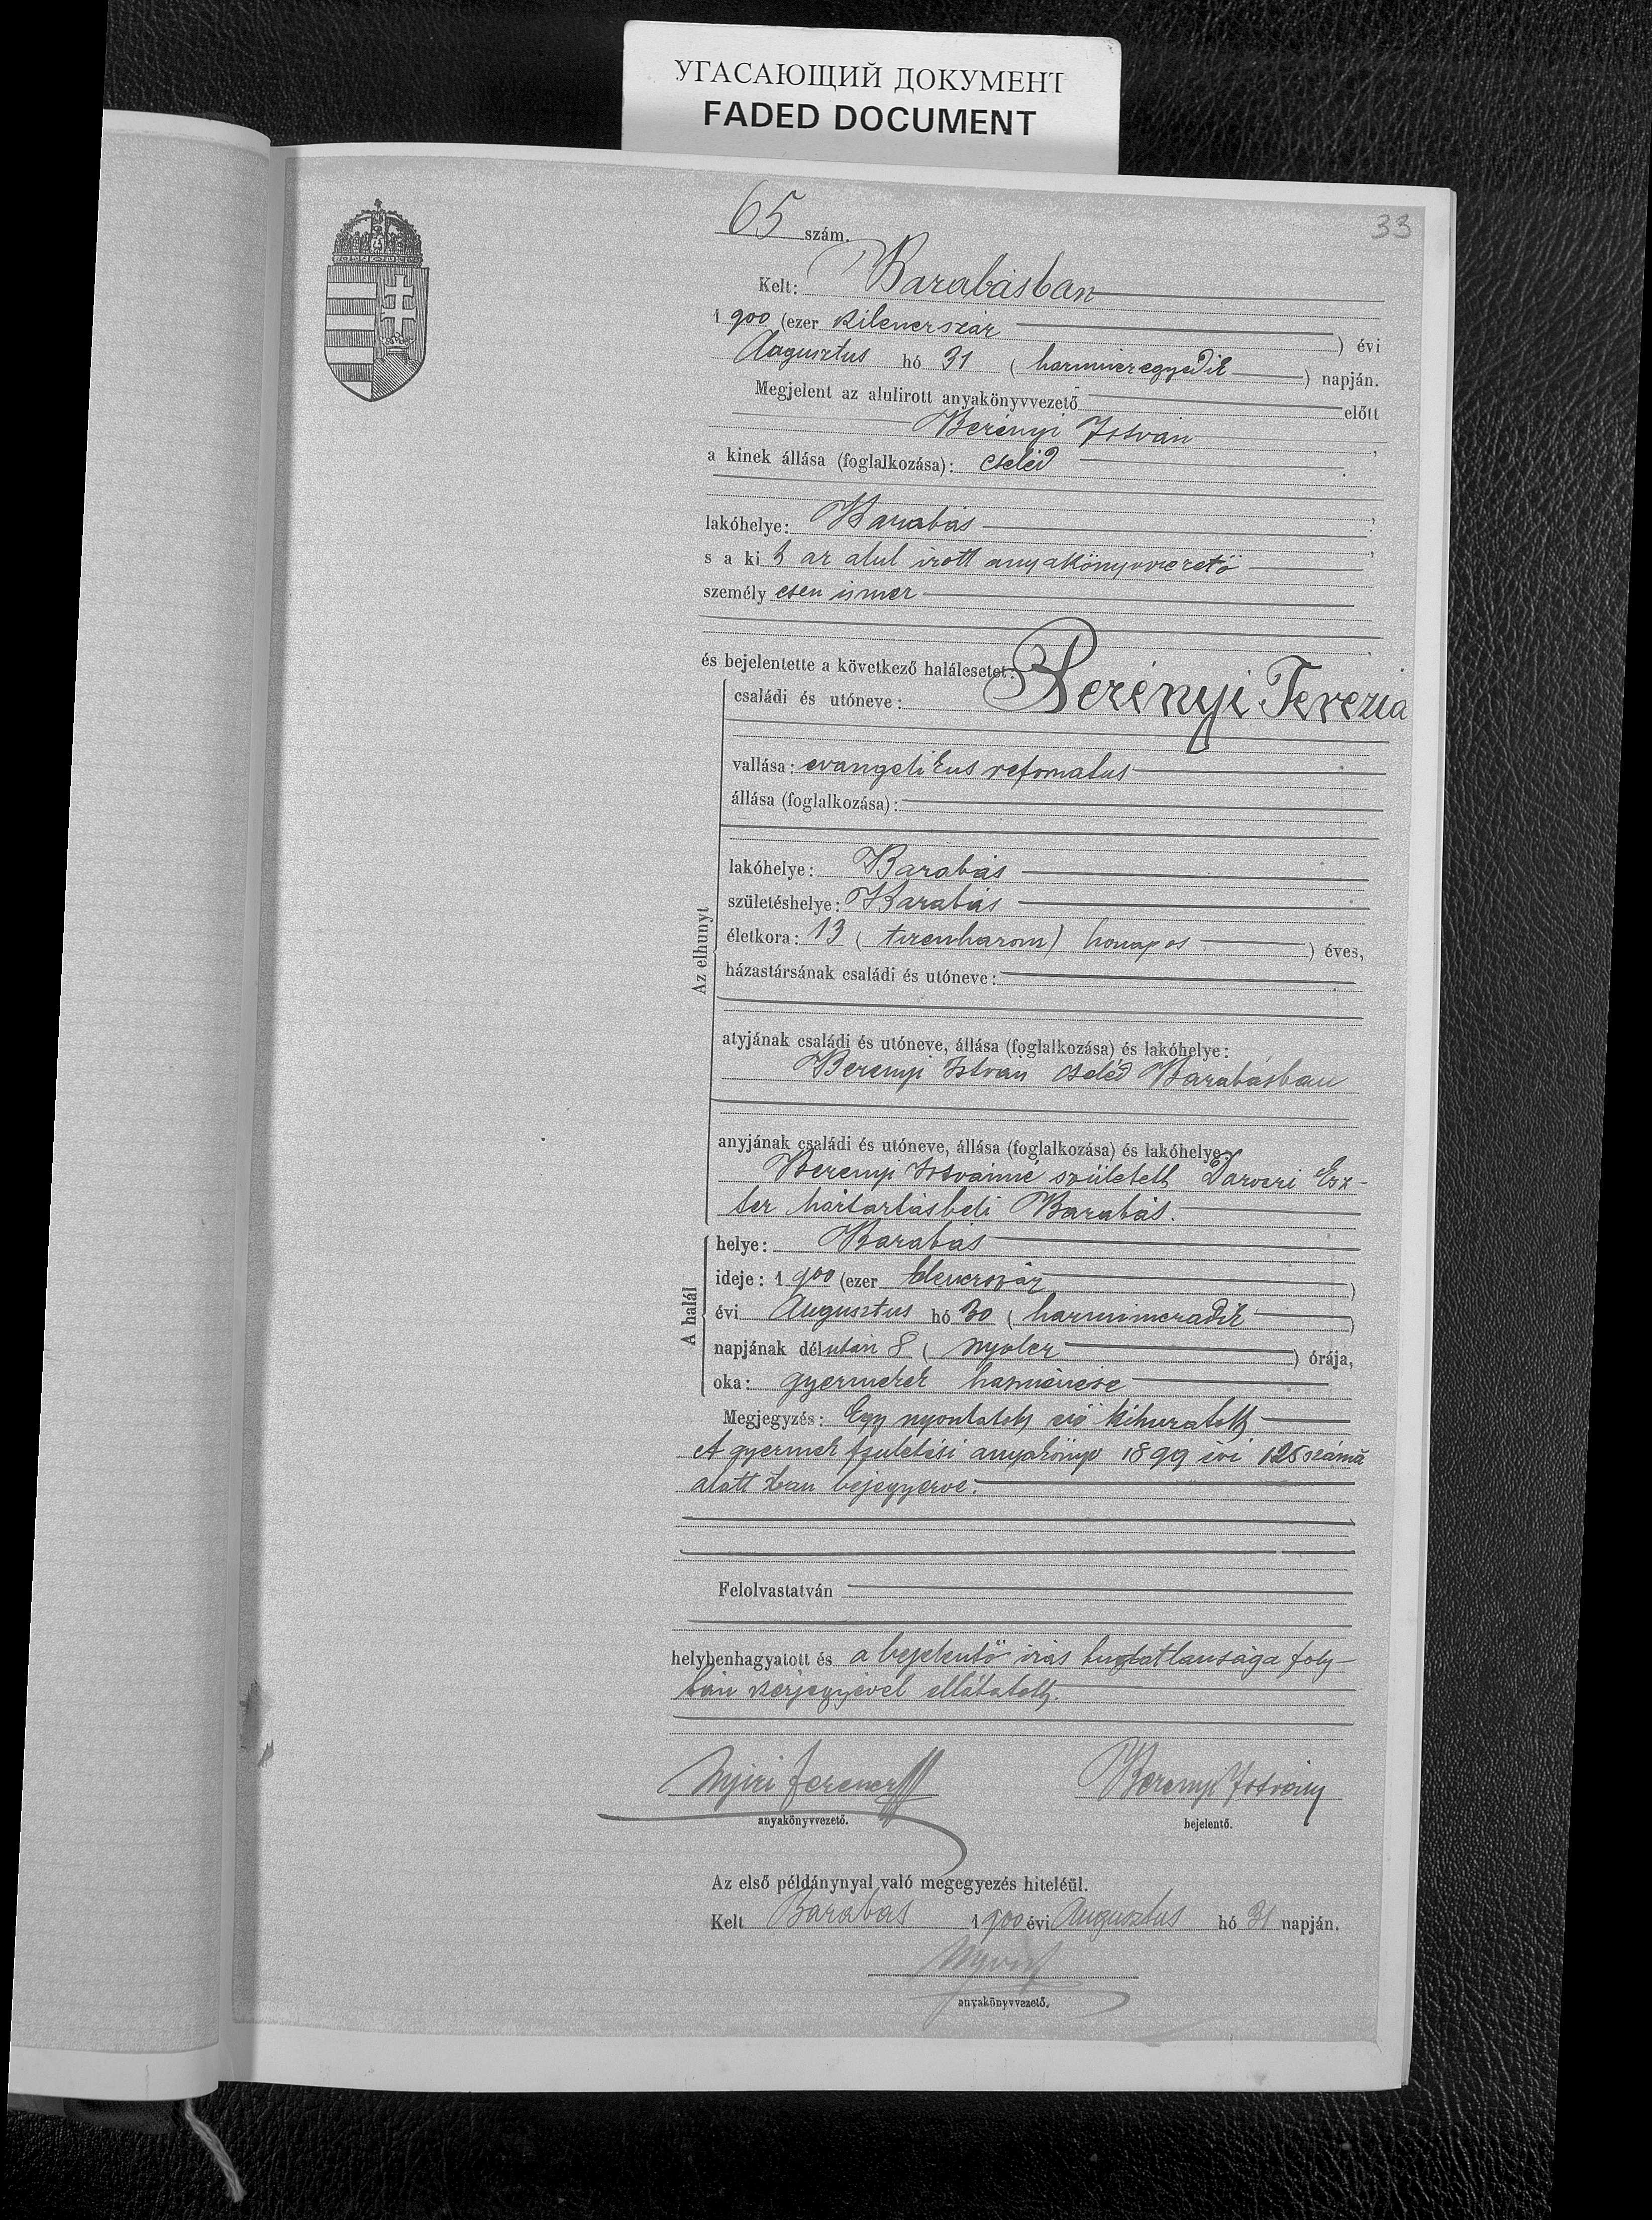 УГАСАЮЩИЙ ДОКУМЕНТ
FADED DOCUMENT
33
65 szám.
Kelt: Barabásban
1900 (ezer kilencszáz ) évi
Augusztus hó 31 ( harmincegyedik ) napján.
Megjelent az alulirott anyakönyvvezető előtt
Berényi István
a kinek állása (foglalkozása): cseléd
lakóhelye: Barabás
s a ki t az alul irott anyakönyvvezető
személy esen ismer
és bejelentette a következő halálesetet:
családi és utóneve: Berényi Terezia
vallása: evangelikus refomatus
állása (foglalkozása):
lakóhelye: Barabás
születéshelye: Barabás
életkora: 13 ( tizenharom) honapos ) éves,
házastársának családi és utóneve:
atyjának családi és utóneve, állása (foglalkozása) és lakóhelye:
Berenyi István cseléd Barabásban
anyjának családi és utóneve, állása (foglalkozása) és lakóhelye:
Berenyi Istvánné született Darvczi Esz-
ter háztartásbeli Barabás.
Az elhunyt
helye: Barabás
ideje: 1900 (ezer kilencszáz )
évi Augusztus hó 30 ( harminczadik )
napjának délután 8 ( nyolcz ) órája,
oka: gyermekek hasmenése
A halál
Megjegyzés: Egy nyomtatott szó kihuzatott
A gyermek születési anyakönyv 1899 évi 126 száma
alatt van bejegyezve.
Felolvastatván
helybenhagyatott és a bejelentő irás tudatlansága foly-
tán kézjegyével ellátatott.
Nyiri Ferencz
anyakönyvvezető.
Berenyi István
bejelentő.
Az első példánynyal való megegyezés hiteléül.
Kelt Barabás 1900 évi Augusztus hó 31 napján.
anyakönyvvezető.